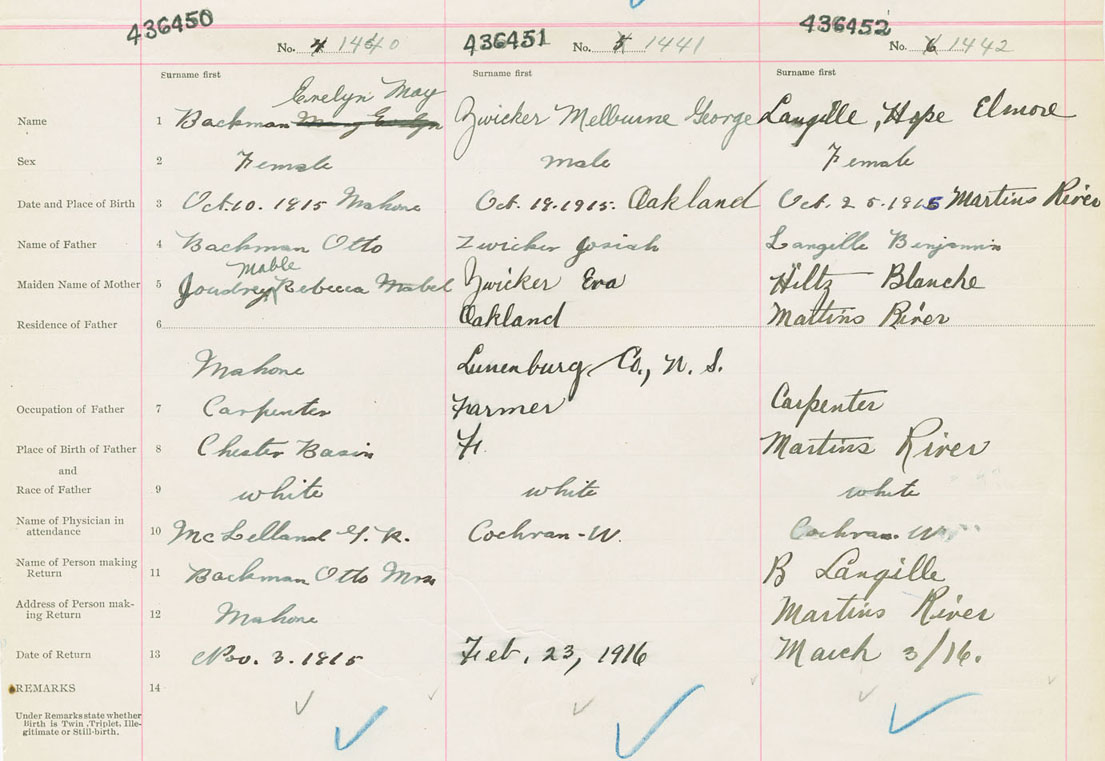 436450 No. 4 1440 436451 No. 5 1441 436452 No. 6 1442
Surname first Surname first Surname first
Evelyn May
Name 1 Backman May Evelyn Zwicker Melburne George Langille, Hope Elmore
Sex 2 Female male Female
Date and Place of Birth 3 Oct. 10. 1915 Mahone Oct. 19. 1915. Oakland Oct. 25. 1915 Martins River
Name of Father 4 Backman Otto Zwicker Josiah Langille Benjamin
Mable
Maiden Name of Mother 5 Joudrey Rebecca Mabel Zwicker Eva Hiltz Blanche
Residence of Father 6 Oakland Martins River
Mahone Lunenburg Co., N. S.
Occupation of Father 7 Carpenter Farmer Carpenter
Place of Birth of Father 8 Chester Basin Martins River
and
Race of Father 9 white white white
Name of Physician in
attendance 10 McLelland Cochran-W. Cochran-W
Name of Person making
Return 11 Backman Otto Mrs B Langille
Address of Person mak-
ing Return 12 Mahone Martins River
Date of Return 13 Nov. 3. 1915 Feb. 23, 1916 March 3/16.
REMARKS 14
Under Remarks state whether
Birth is Twin, Triplet, Ille-
gitimate or Still-birth.